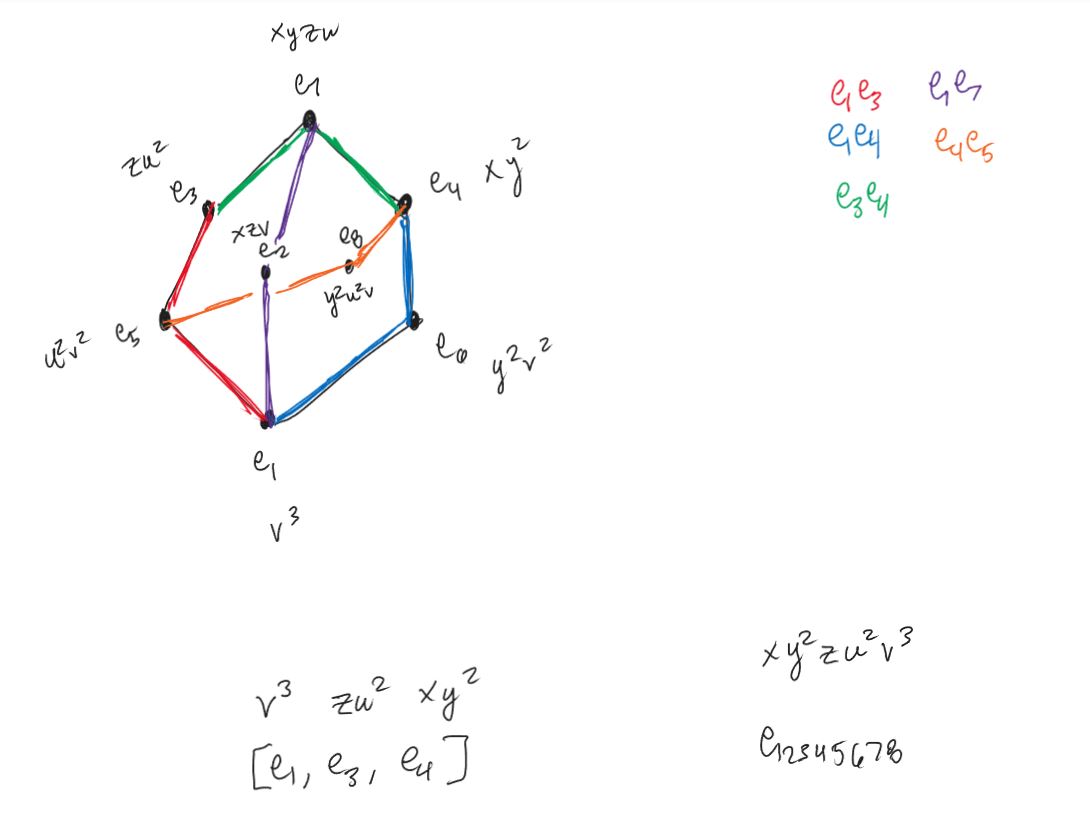 xyzu
e7
zu²
e3
e4 xy²
xzv
e2
e8
y²u²v
u²v² e5
e6 y²v²
e1
v³
e1e3 e1e7
e1e4 e4e5
e3e4
v³ zu² xy²
[e1, e3, e4]
xy²zu²v³
e12345678